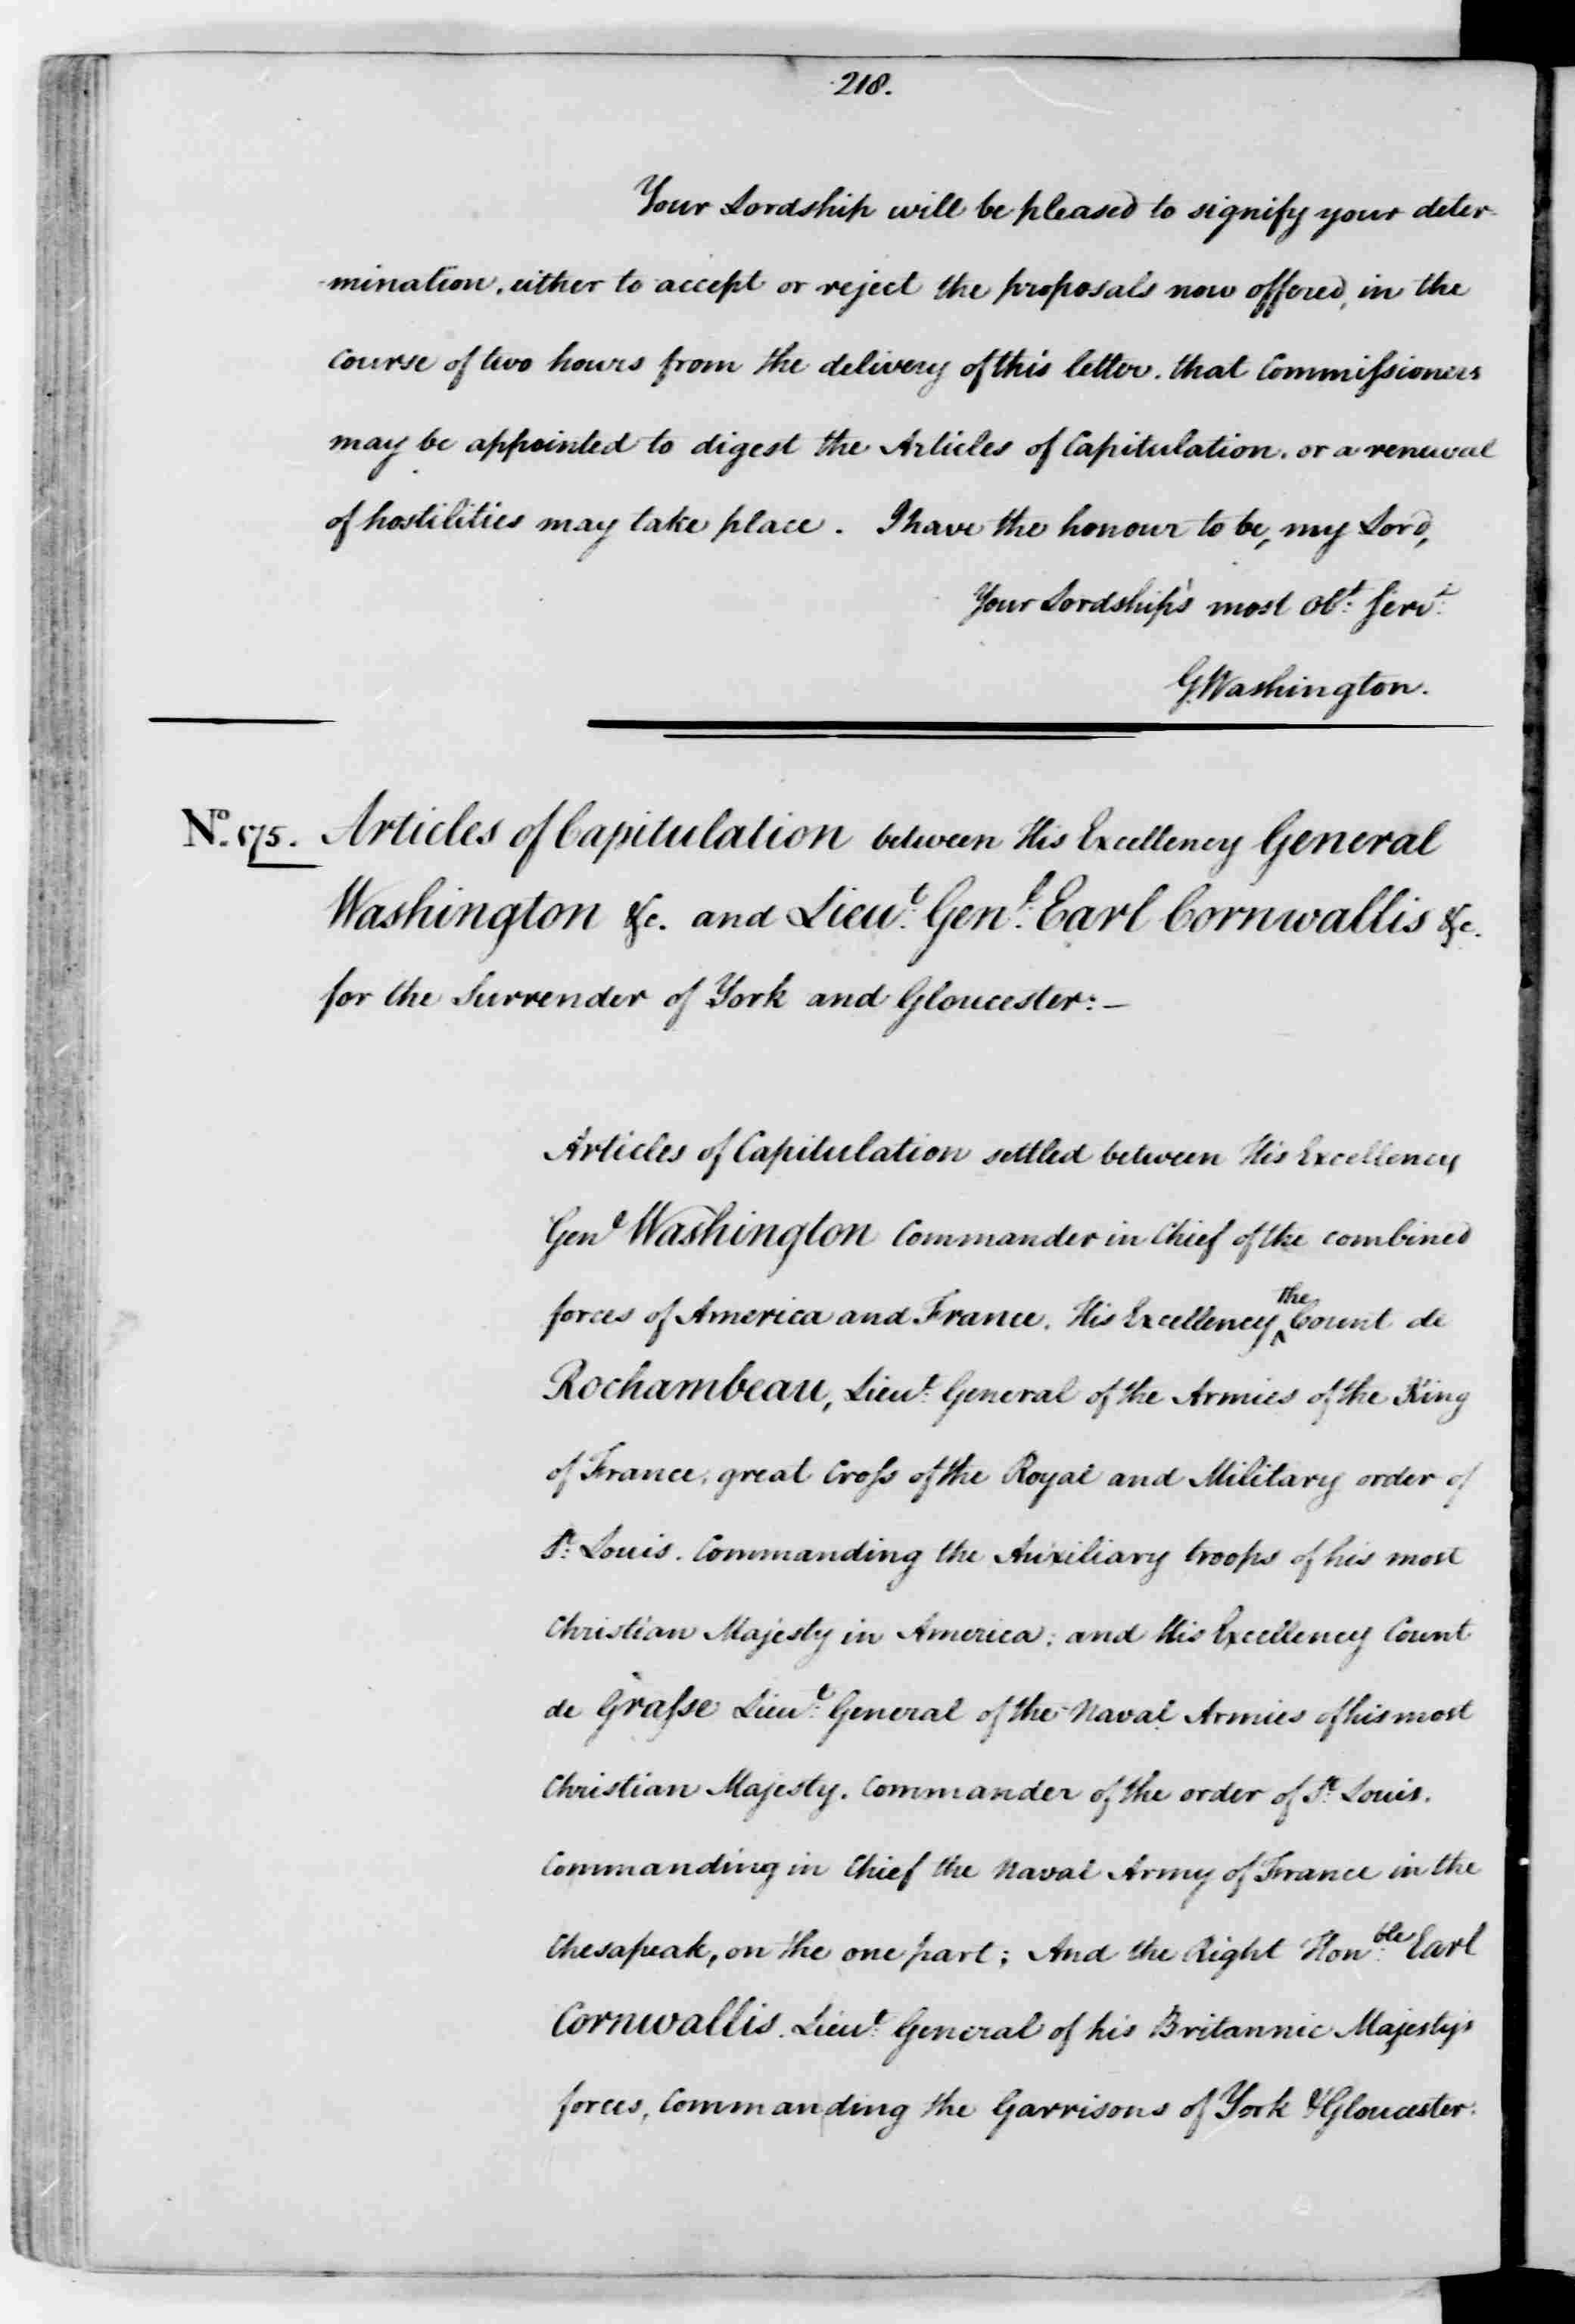 218.
Your Lordship will be pleased to signify your deter-
mination, either to accept or reject the proposals now offered, in the
course of two hours from the delivery of this letter, that Commissioners
may be appointed to digest the Articles of Capitulation, or a renewal
of hostilities may take place. I have the honour to be, my Lord,
Your Lordship's most Obt. Servt.
G. Washington.
No. 175. Articles of Capitulation between His Excellency General
Washington &c. and Lieut. Genl. Earl Cornwallis &c.
for the Surrender of York and Gloucester:—
Articles of Capitulation settled between His Excellency
Genl Washington Commander in Chief of the combined
forces of America and France. His Excellency the Count de
Rochambeau, Lieut. General of the Armies of the King
of France, great Cross of the Royal and Military order of
St. Louis. Commanding the Auxiliary troops of his most
Christian Majesty in America; and His Excellency Count
de Grasse Lieut. General of the Naval Armies of his most
Christian Majesty. Commander of the order of St. Louis.
Commanding in Chief the Naval Army of France in the
Chesapeak, on the one part; And the Right Honble. Earl
Cornwallis. Lieut. General of his Britannic Majesty's
forces, Commanding the Garrisons of York & Gloucester.